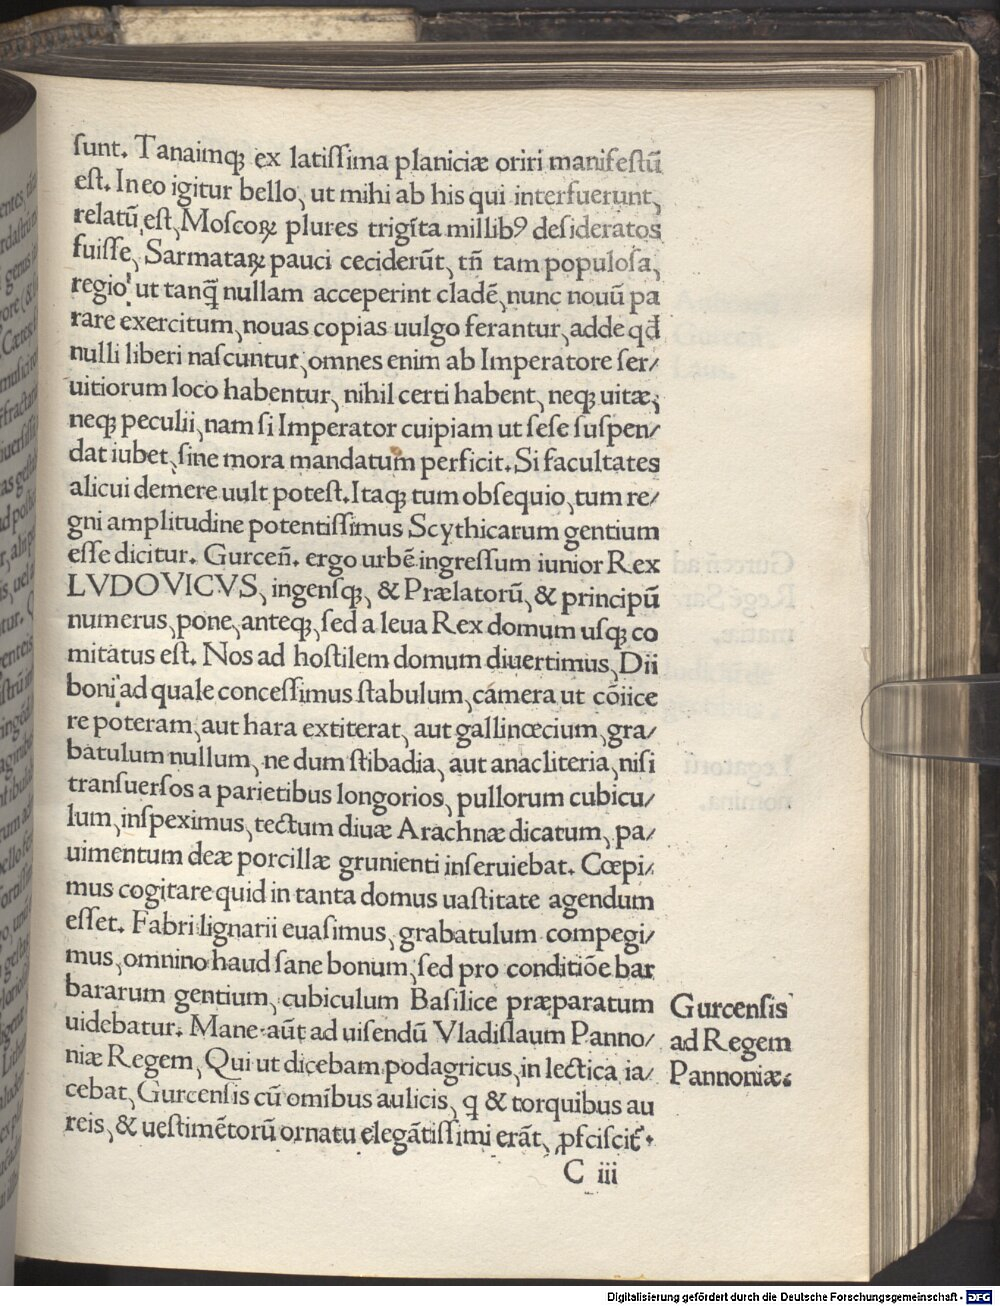 ſunt. Tanaimqꝫ ex latiſſima planiciæ oriri manifeſtũ
eſt. In eo igitur bello, ut mihi ab his qui interfuerunt,
relatũ eſt, Moſcoꝝ plures trigĩta millibꝰ deſideratos
fuiſſe, Sarmataꝝ pauci ceciderũt, tñ tam populoſa,
regio, ut tanq̃ nullam acceperint cladẽ, nunc nouũ pa
rare exercitum, nouas copias uulgo ferantur, adde qđ
nulli liberi naſcuntur, omnes enim ab Imperatore ſer/
uitiorum loco habentur, nihil certi habent, neqꝫ uitæ,
neqꝫ peculii, nam ſi Imperator cuipiam ut ſeſe ſuſpen/
dat iubet, ſine mora mandatum perficit. Si facultates
alicui demere uult poteſt. Itaqꝫ tum obſequio, tum re/
gni amplitudine potentiſſimus Scythicarum gentium
eſſe dicitur. Gurceñ. ergo urbẽ ingreſſum iunior Rex
LVDOVICVS, ingenſqꝫ, & Prælatorũ, & principũ
numerus, pone, anteqꝫ, ſed a leua Rex domum uſqꝫ co
mitatus eſt. Nos ad hoſtilem domum diuertimus, Dii
boni ad quale conceſſimus ſtabulum, camera ut cõiice
re poteram, aut hara extiterat, aut gallinœcium, gra/
batulum nullum, ne dum ſtibadia, aut anacliteria, niſi
tranſuerſos a parietibus longorios, pullorum cubicu/
lum, inſpeximus, tectum diuæ Arachnæ dicatum, pa/
uimentum deæ porcillæ grunienti inſeruiebat. Cœpi/
mus cogitare quid in tanta domus uaſtitate agendum
eſſet. Fabri lignarii euaſimus, grabatulum compegi/
mus, omnino haud ſane bonum, ſed pro conditiõe bar
bararum gentium, cubiculum Baſilice præparatum
uidebatur. Mane aũt ad uiſendũ Vladiſlaum Panno/
niæ Regem, Qui ut dicebam podagricus, in lectica ia/
cebat, Gurcenſis cũ omibus aulicis, q & torquibus au
reis, & ueſtimẽtorũ ornatu elegãtiſſimi erãt, ꝓfciſcit̃.
C iii
Gurcenſis
ad Regem
Pannoniæ.
Digitalisierung gefördert durch die Deutsche Forschungsgemeinschaft - DFG